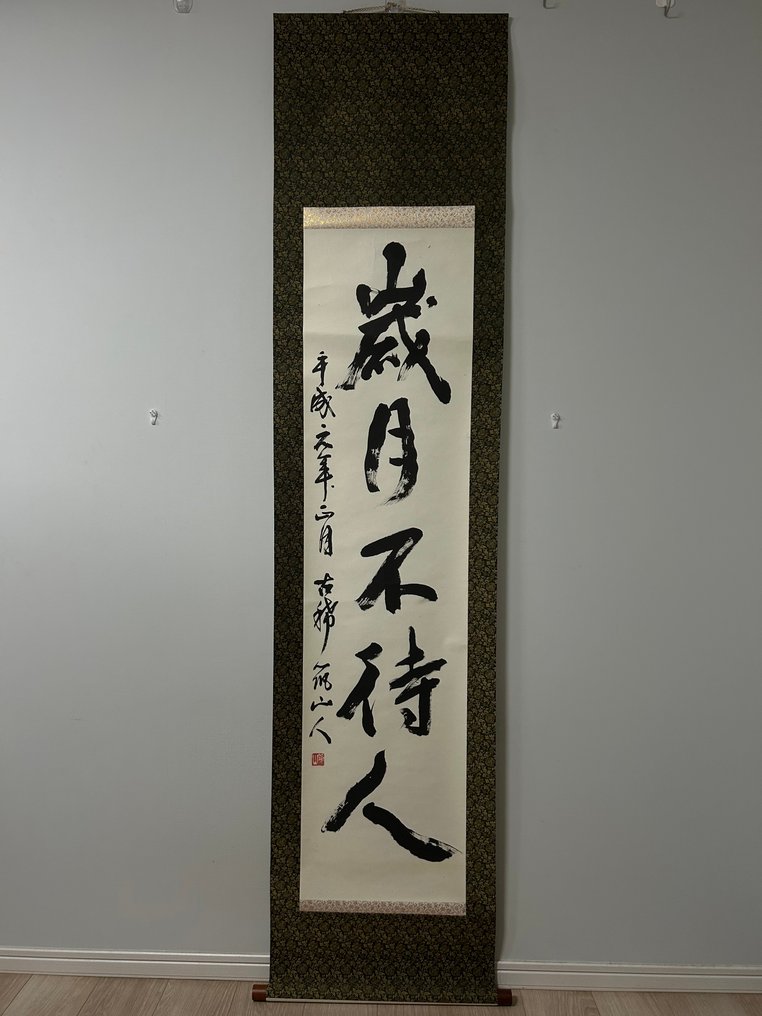 歳月不待人
平成元年正月 古稀 筑山人